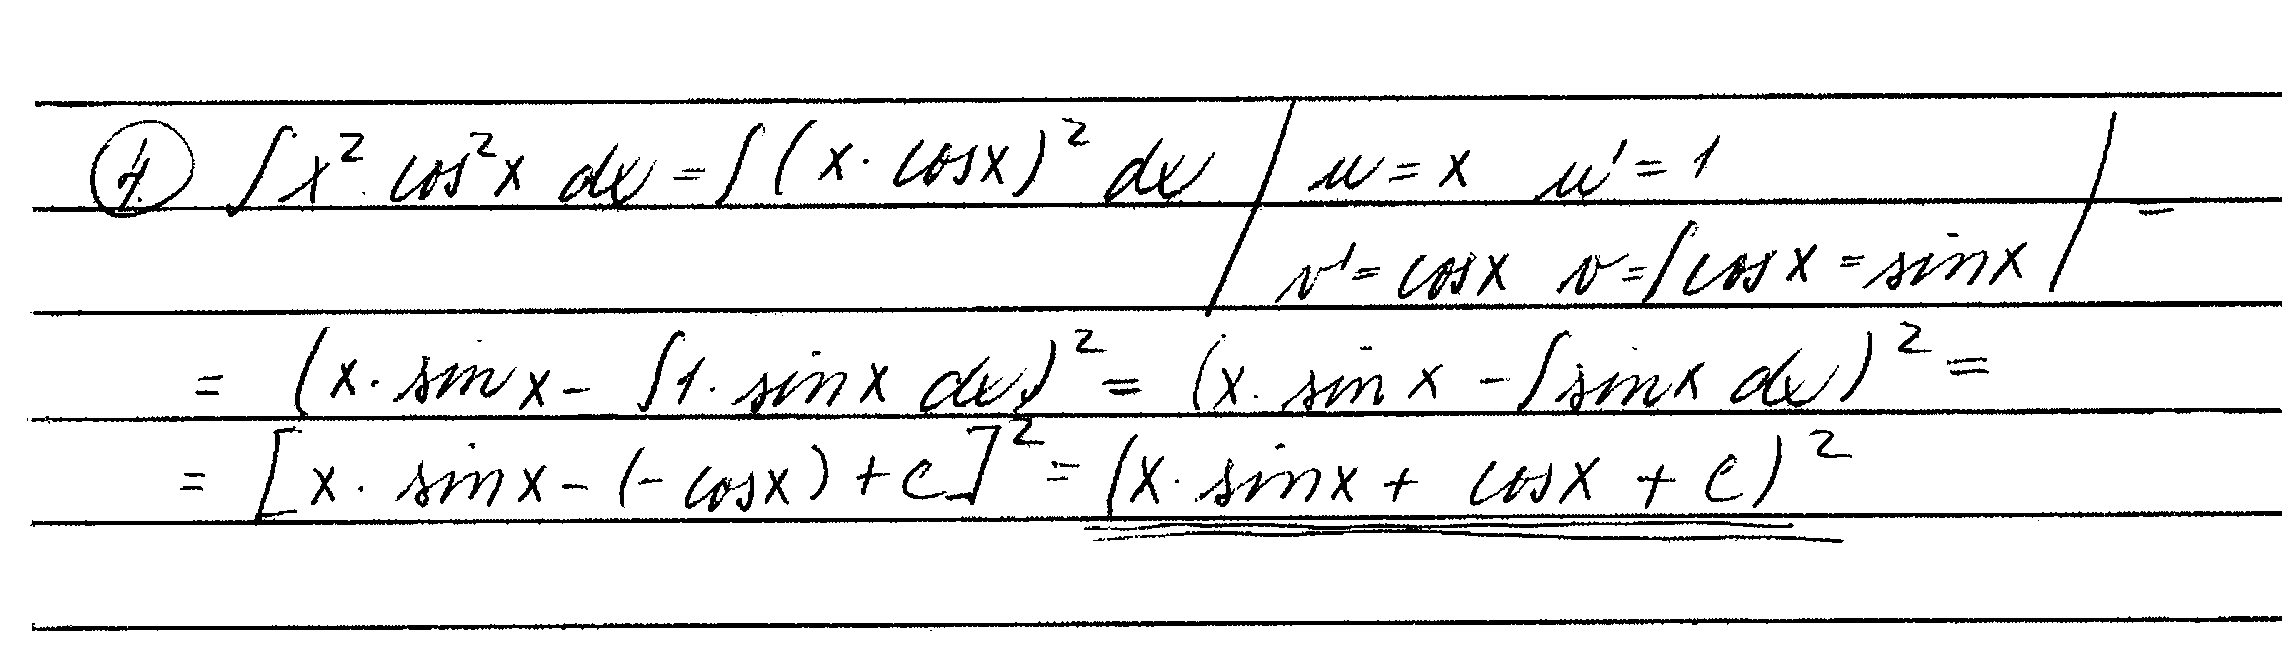 1. ∫ x² cos²x dx = ∫ (x · cosx)² dx | u = x u' = 1 | =
v' = cosx v = ∫ cosx = sinx
= (x · sinx - ∫ 1 · sinx dx)² = (x · sinx - ∫ sinx dx)² =
= [x · sinx - (-cosx) + c]² = (x · sinx + cosx + c)²